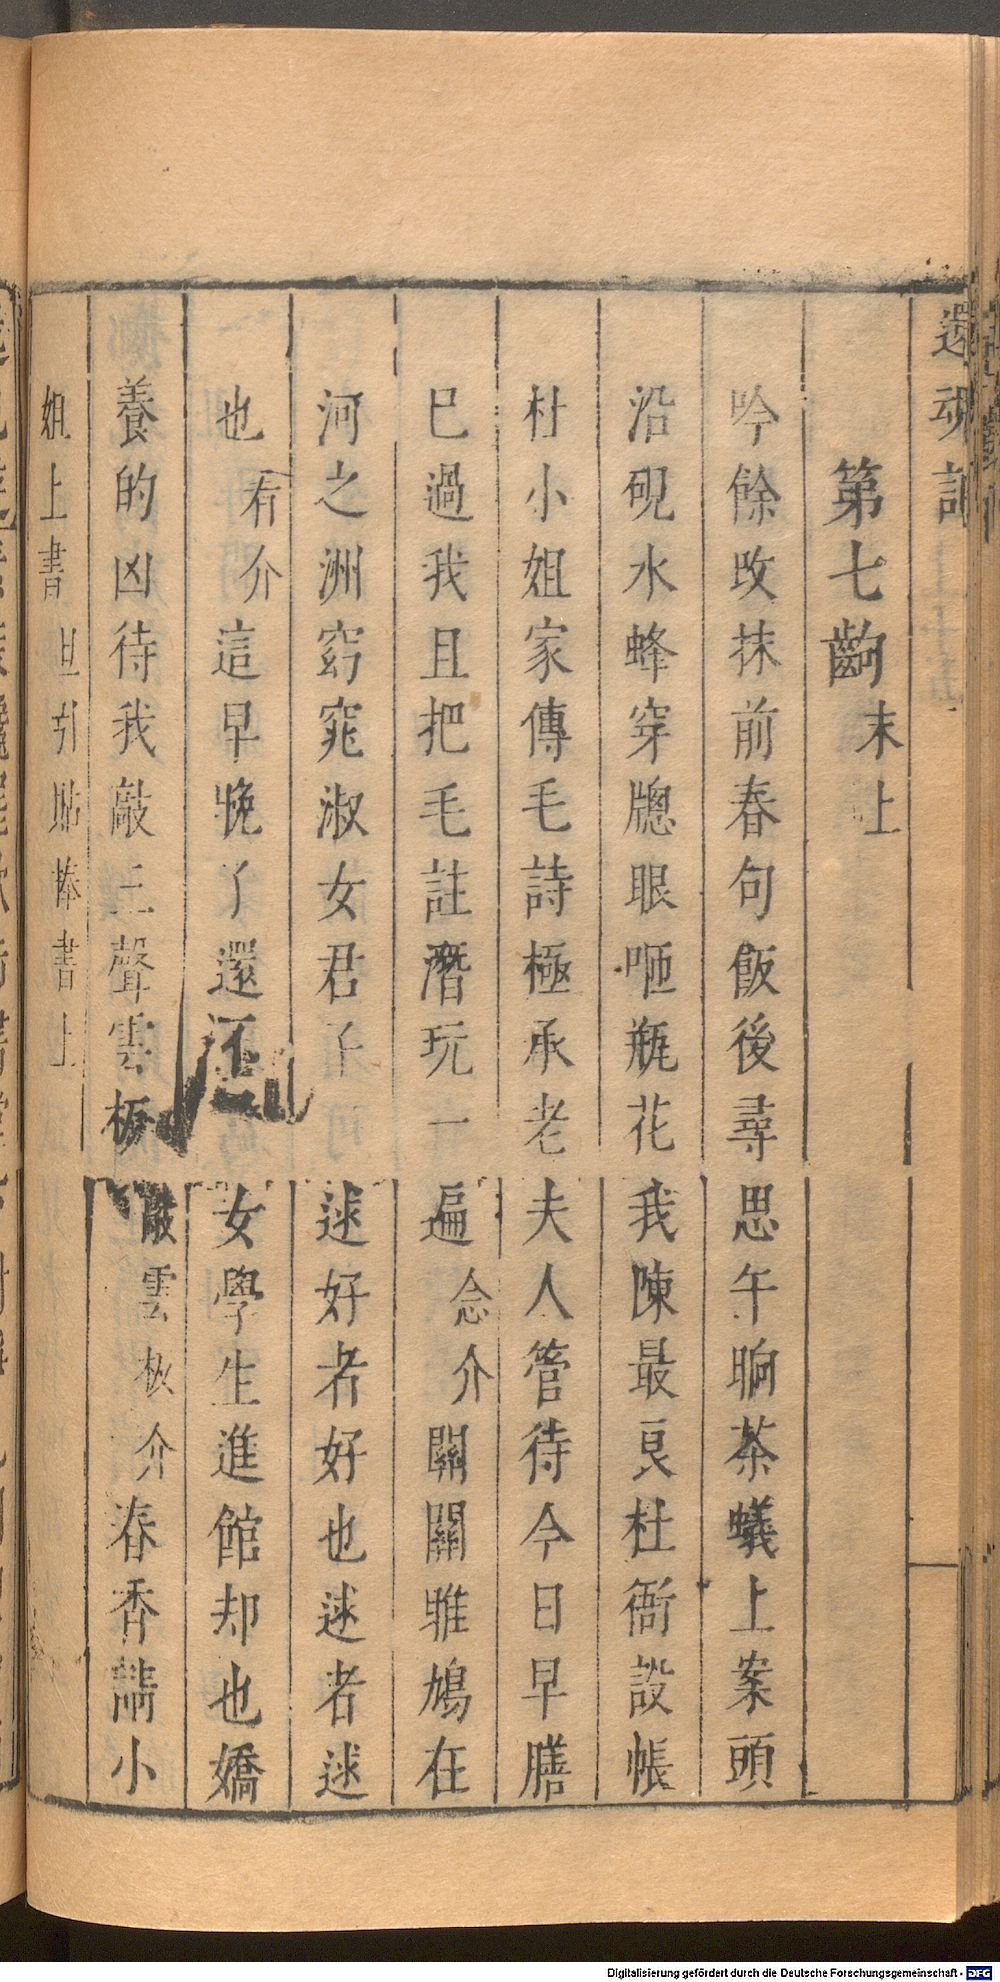 還魂記
第七齣末上
吟餘改抹前春句飯後尋思午晌茶蟻上案頭
沿硯水蜂穿牕眼咂瓶花我陳最良杜衙設帳
杜小姐家傳毛詩極承老夫人管待今日早膳
已過我且把毛註潛玩一遍念介關關雎鳩在
河之洲窈窕淑女君子逑好者好也逑者逑
也看介這早晚了還不見女學生進館却也嬌
養的凶待我敲三聲雲板敲雲板介春香請小
姐上書旦引貼捧書上
Digitalisierung gefördert durch die Deutsche Forschungsgemeinschaft - DFG